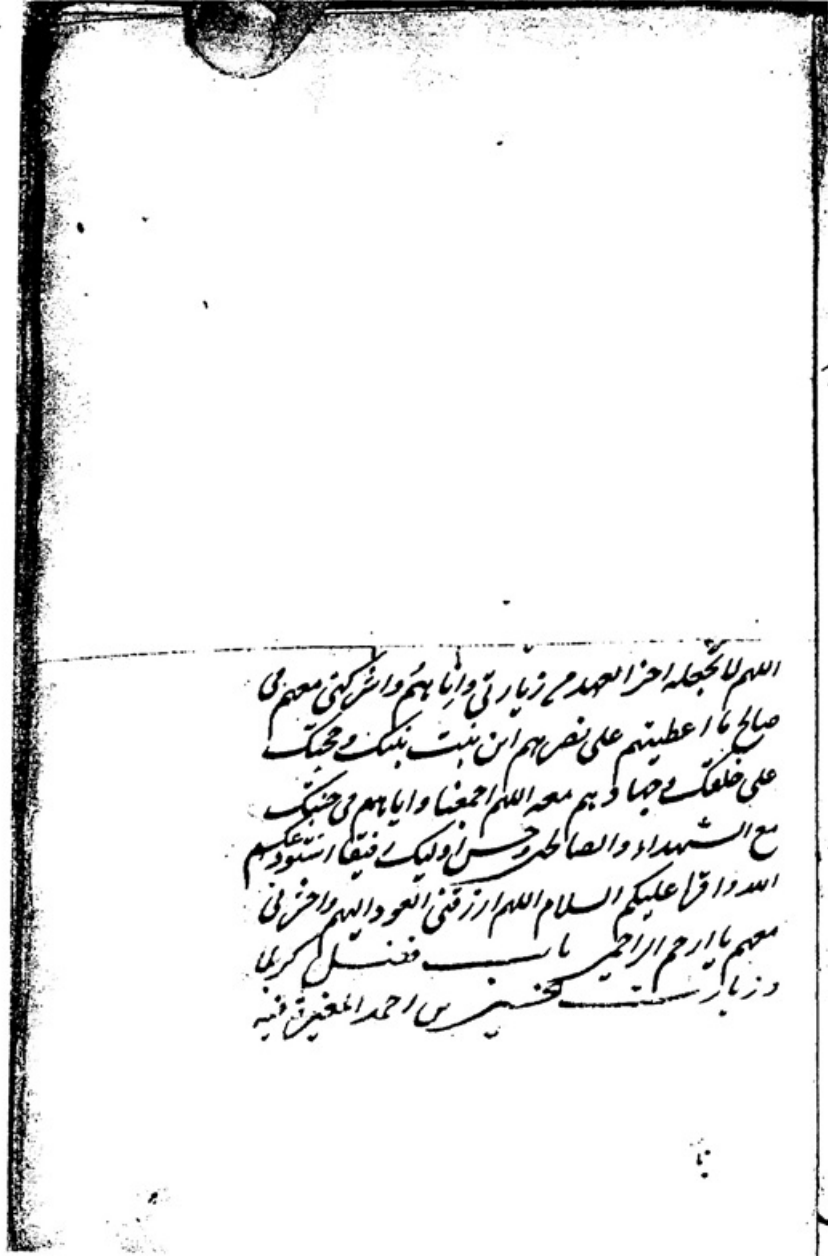 اللهم لا تجعله اخر العهد من زيارتي واياهم واشركني معهم في
صالح ما اعطيتهم على نصرهم ابن بنت نبيك وحجتك
على خلقك وجهادهم معه اللهم اجمعنا واياهم في جنتك
مع الشهداء والصالحين وحسن اوليك رفيقا استودعكم
الله واقرا عليكم السلام اللهم ارزقني العود اليهم واحشرني
معهم يا ارحم الراحمين باب فضل كربلا
و زيارت الحسين بن احمد المغيرة فيه